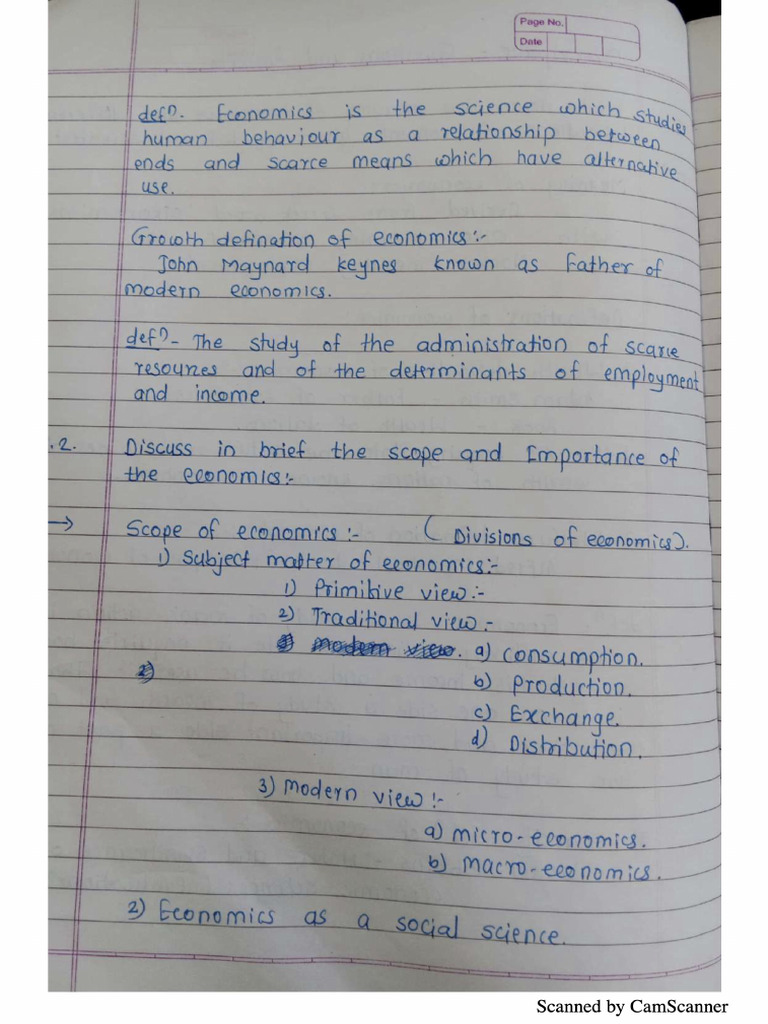 Page No.
Date
defn. Economics is the science which studies
human behaviour as a relationship between
ends and scarce means which have alternative
use.
Growth defination of economics:-
John Maynard Keynes known as Father of
modern economics.
defn - The study of the administration of scarce
resources and of the determinants of employment
and income.
.2. Discuss in brief the scope and Importance of
the economics:-
→ Scope of economics :- ( Divisions of economics).
1) Subject matter of economics:-
1) Primitive view :-
2) Traditional view :-
a) Consumption.
b) Production.
c) Exchange.
d) Distribution.
3) Modern view :-
a) micro-economics.
b) macro-economics.
2) Economics as a social science.
Scanned by CamScanner